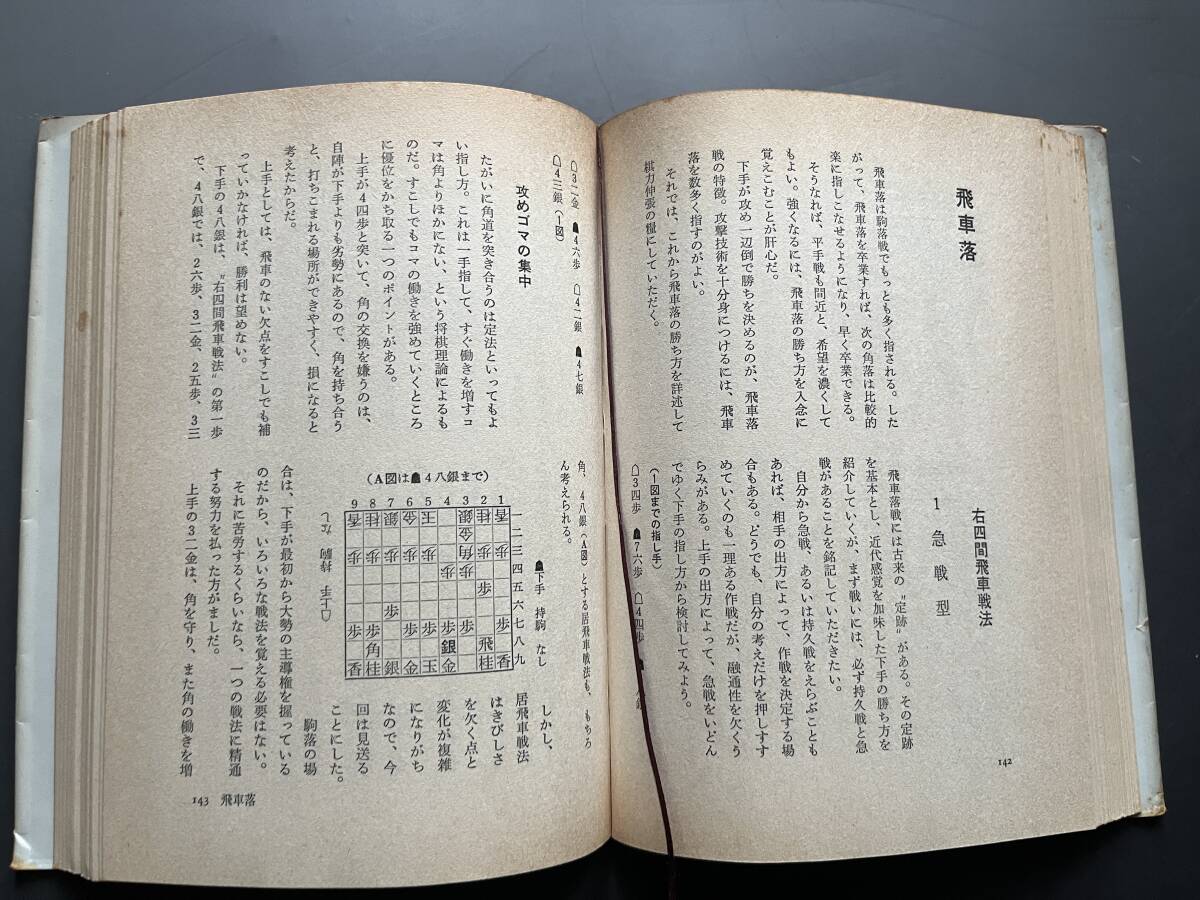 飛車落
飛車落は駒落戦でもっとも多く指される。した
がって、飛車落を卒業すれば、次の角落は比較的
楽に指しこなせるようになり、早く卒業できる。
そうなれば、平手戦も間近と、希望を濃くして
もよい。強くなるには、飛車落の勝ち方を入念に
覚えこむことが肝心だ。
下手が攻め一辺倒で勝ちを決めるのが、飛車落
戦の特徴。攻撃技術を十分身につけるには、飛車
落を数多く指すのがよい。
それでは、これから飛車落の勝ち方を詳述して
棋力伸張の糧にしていただく。
右四間飛車戦法
1 急戦型
飛車落戦には古来の〝定跡〟がある。その定跡
を基本とし、近代感覚を加味した下手の勝ち方を
紹介していくが、まず戦いには、必ず持久戦と急
戦があることを銘記していただきたい。
自分から急戦、あるいは持久戦をえらぶことも
あれば、相手の出方によって、作戦を決定する場
合もある。どうでも、自分の考えだけを押しすす
めていくのも一理ある作戦だが、融通性を欠くう
らみがある。上手の出方によって、急戦をいどん
でゆく下手の指し方から検討してみよう。
(1図までの指し手)
☖3四歩 ☗7六歩 ☖4四歩 八銀
142
☖3二金 ☗4六歩 ☖4二銀 ☗4七銀
☖4三銀(1図)
攻めゴマの集中
たがいに角道を突き合うのは定法といってもよ
い指し方。これは一手指して、すぐ働きを増すコ
マは角よりほかにない、という将棋理論によるも
のだ。すこしでもコマの働きを強めていくところ
に優位をかち取る一つのポイントがある。
上手が4四歩と突いて、角の交換を嫌うのは、
自陣が下手よりも劣勢にあるので、角を持ち合う
と、打ちこまれる場所ができやすく、損になると
考えたからだ。
上手としては、飛車のない欠点をすこしでも補
っていかなければ、勝利は望めない。
下手の4八銀は、〝右四間飛車戦法〟の第一歩
で、4八銀では、2六歩、3二金、2五歩、3三
角、4八銀(A図)とする居飛車戦法も、もちろ
ん考えられる。
(A図は☗4八銀まで)
☗下手 持駒 なし
☖上手 持駒 なし
9 8 7 6 5 4 3 2 1
一二三四五六七八九
香桂銀金王銀桂香
金
歩歩歩歩歩角歩歩
歩歩
歩
歩
歩歩歩歩歩歩歩
角銀飛
香桂銀金玉金桂香
しかし、
居飛車戦法
はきびしさ
を欠く点と
変化が複雑
になりがち
なので、今
回は見送る
ことにした。
駒落の場
合は、下手が最初から大勢の主導権を握っている
のだから、いろいろな戦法を覚える必要はない。
それに苦労するくらいなら、一つの戦法に精通
する努力を払った方がましだ。
上手の3二金は、角を守り、また角の働きを増
143 飛車落